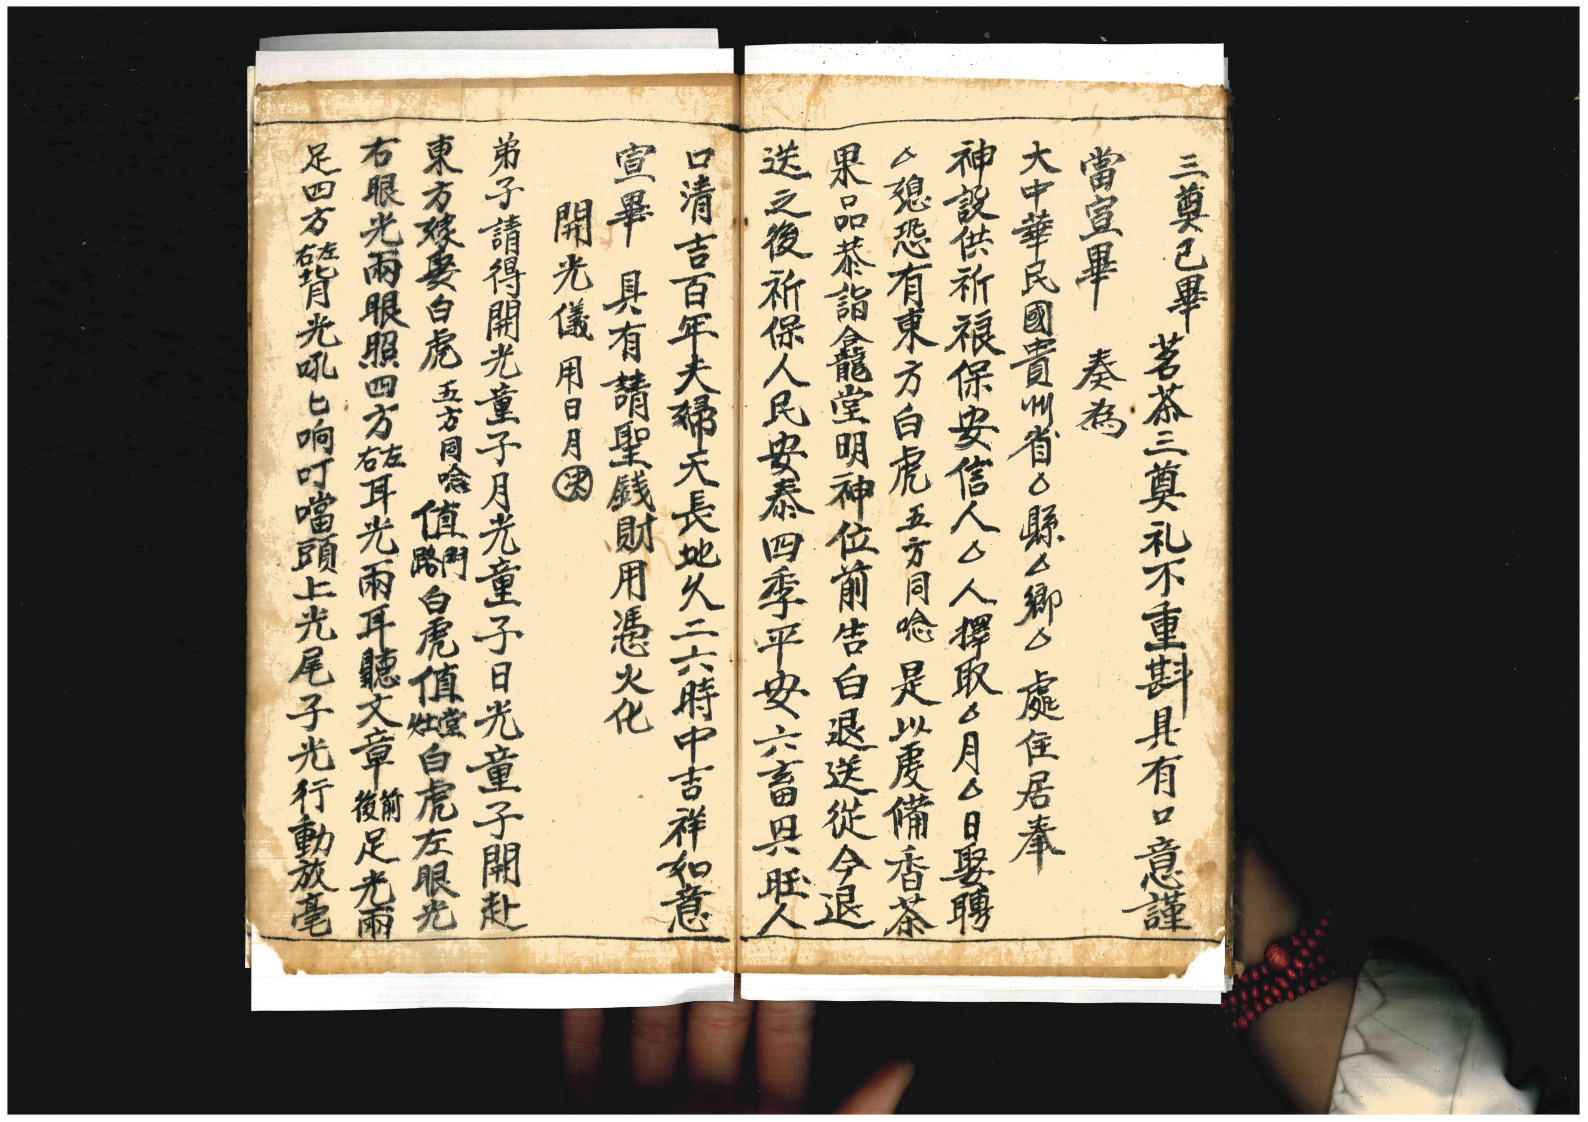 三奠已畢　茗茶三奠礼不重斟具有口意謹
當宣畢　奏為
大中華民國貴州省△縣△鄉△處住居奉
神設供祈禳保安信人△人擇取△月△日娶聘
△㐫恐有東方白虎五方同唸是以虔備香茶
果品恭詣龕堂明神位前告白退送從今退
送之後祈保人民安泰四季平安六畜興旺人
口清吉百年夫婦天長地久二六時中吉祥如意
宣畢　具有請聖錢財用憑火化
開光儀用日月
弟子請得開光童子月光童子日光童子開赴
東方嫁娶白虎五方同唸值門路白虎值堂灶白虎左眼光
右眼光兩眼照四方左右耳光兩耳聽文章前後足光兩
足四方左右背光吼匕响叮噹頭上光尾子光行動放毫